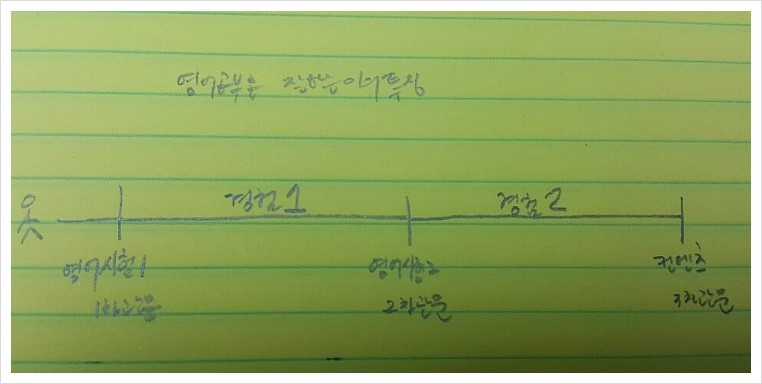 영어공부를 잘하는 이의 특징
경험1 경험2
영어시험1 영어시험2 컨텐츠
1차관문 2차관문 3차관문